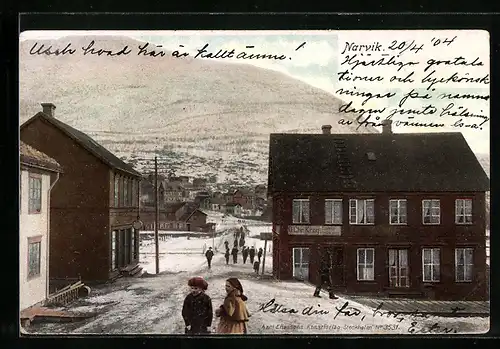 Usch hvad här är kallt ännu!
Narvik. 20/4 '04
Hjärtliga gratula
tioner och lyckönsk
ningar på namns
dagen jämte hälsning
ar från vännen Isa.
Hälsa din far, bror
Axel Eliassons Konstförlag Stockholm Nº 3531